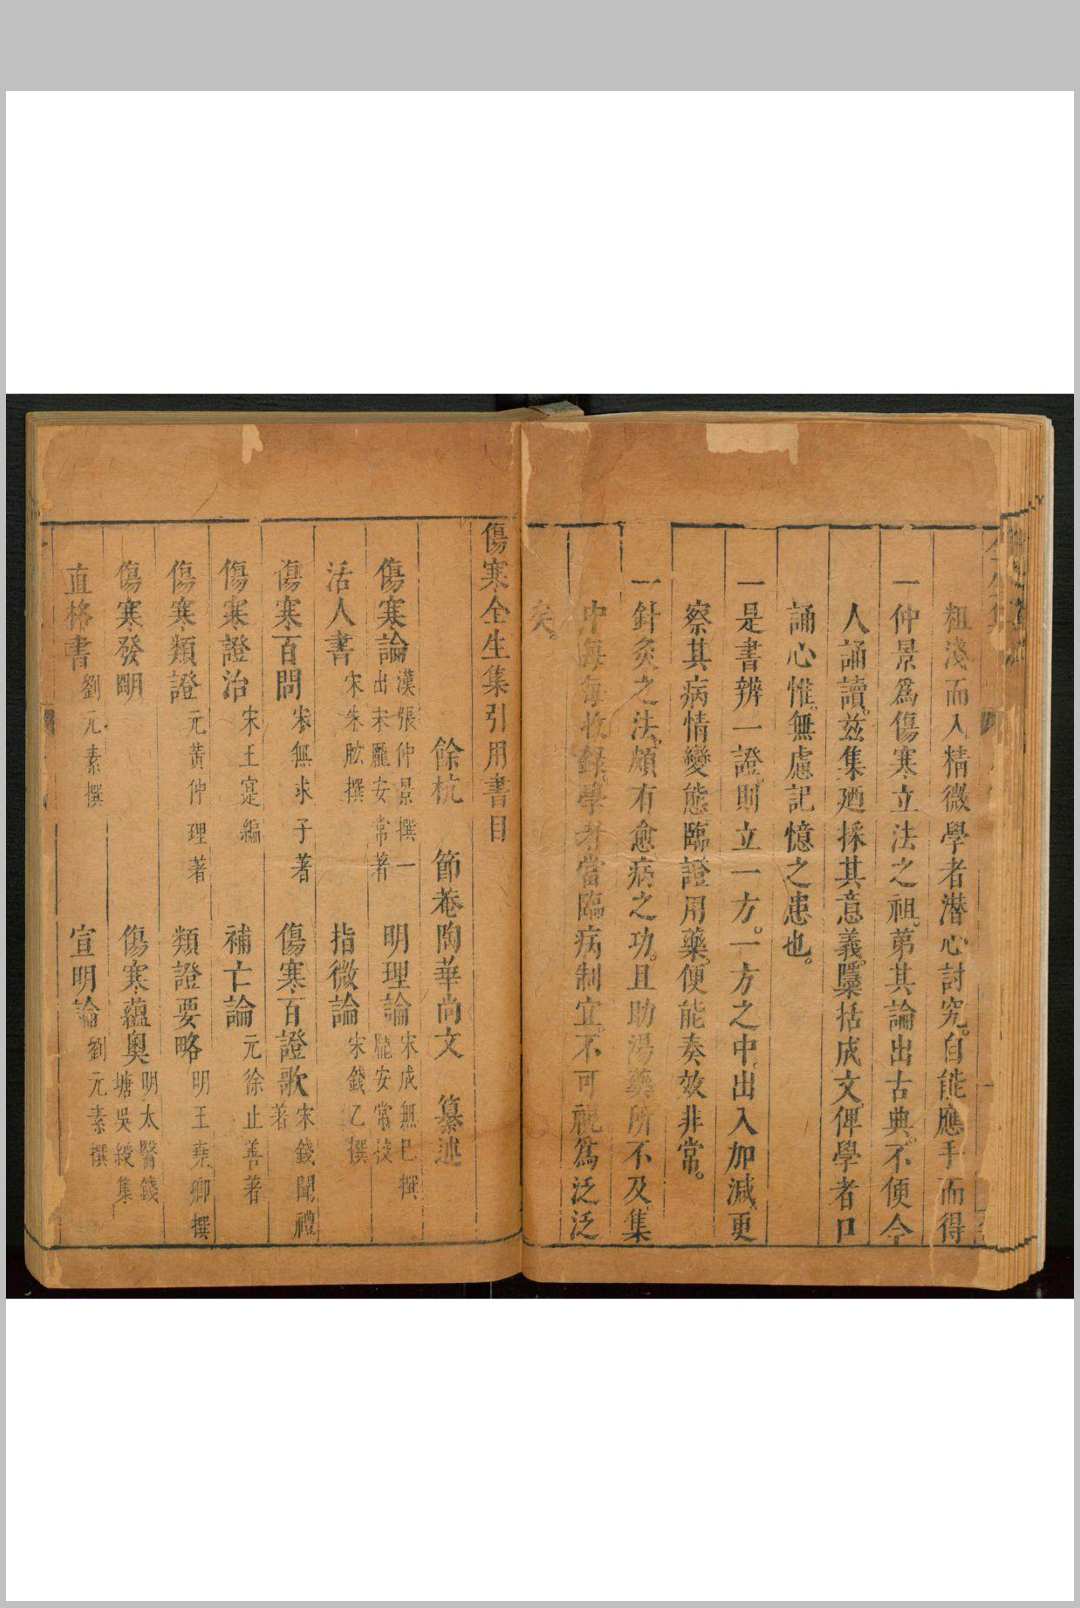 粗淺而入精微學者潛心討究。自能應手而得
一仲景爲傷寒立法之祖。第其論出古典。不便今
人誦讀。兹集廼採其意義。隱括成文俾學者口
誦心惟。無慮記憶之患也。
一是書辨一證。則立一方。一方之中。出入加減。更
察其病情變態。臨證用藥。便能奏效非常。
一針灸之法。頗有愈病之功。且助湯藥所不及。集
中每每收錄。學者當臨病制宜。不可視爲泛泛
矣。
傷寒全生集引用書目
餘杭 節菴陶華尚文 纂述
傷寒論 漢張仲景撰一出宋龐安常著 明理論 宋成無巳撰龐安常注
活人書 宋朱肱撰 指微論 宋錢乙撰
傷寒百問 宋無求子著 傷寒百證歌 宋錢聞禮著
傷寒證治 宋王寔編 補亡論 元徐止善著
傷寒類證 元黃仲理著 類證要略 明王堯卿撰
傷寒發明 傷寒蘊奧 明太醫錢塘吳綬集
直格書 劉元素撰 宣明論 劉元素撰